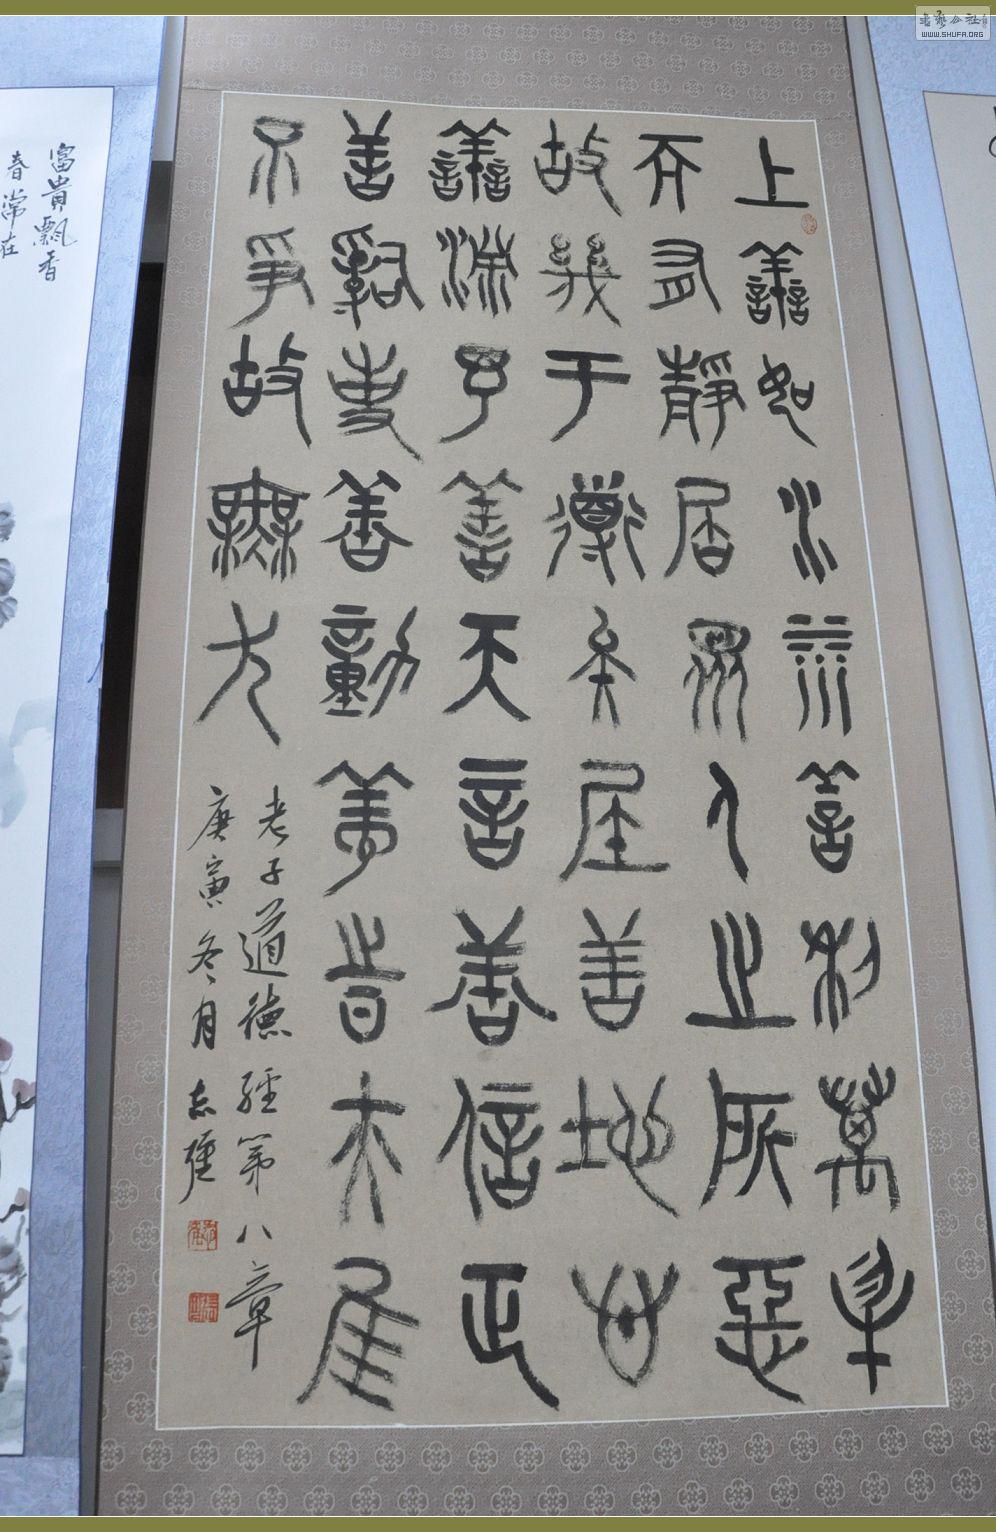 上善如水水善利萬物
而有靜居眾人之所惡
故幾于道矣居善地心
善淵予善天言善信正
善治事善動善時夫唯
不爭故無尤
老子道德經第八章
庚寅冬月志
富貴飄香
春常在
书艺公社
WWW.SHUFA.ORG